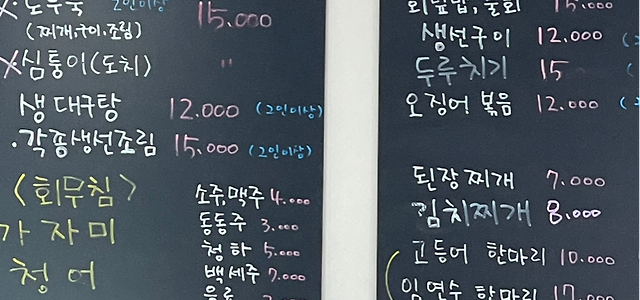 2인이상 15.000
(찌개,구이.조림)
X심퉁이(도치) "
생대구탕 12.000 (2인이상)
.각종생선조림 15.000 (2인이상)
<회무침>
가자미
청어
소주,맥주 4.000
동동주 3.000
청하 5.000
백세주 7.000
음료
회덮밥,물회 15.000
생선구이 12.000
두루치기 15
오징어 볶음 12.000
된장찌개 7.000
김치찌개 8.000
고등어 한마리 10.000
임연수 한마리